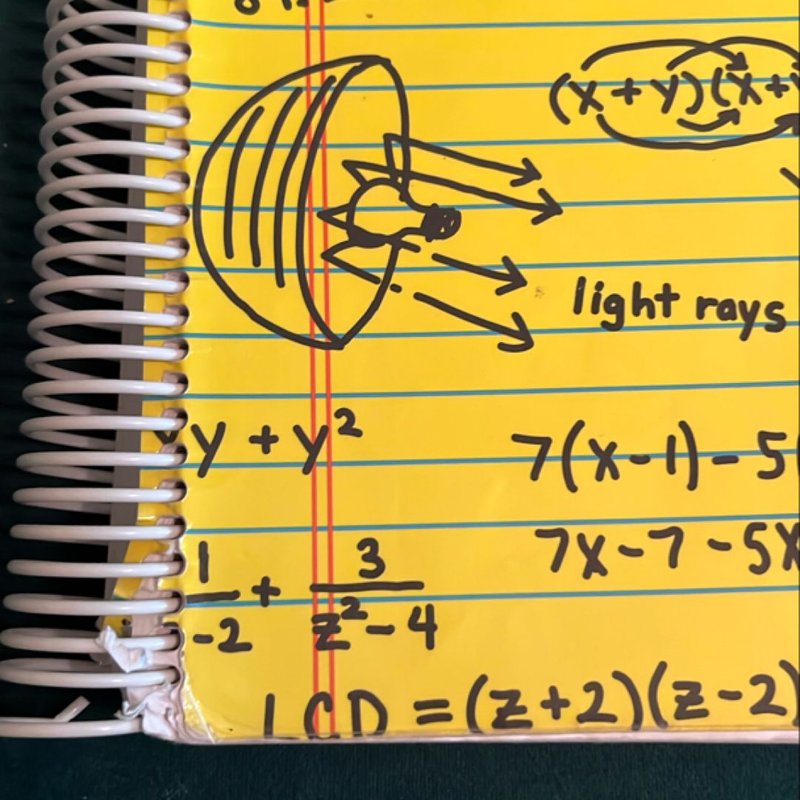 (x+y)(x+
light rays
y + y²
7(x-1) - 5
7x - 7 - 5x
1/-2 + 3/z²-4
LCD = (z+2)(z-2)